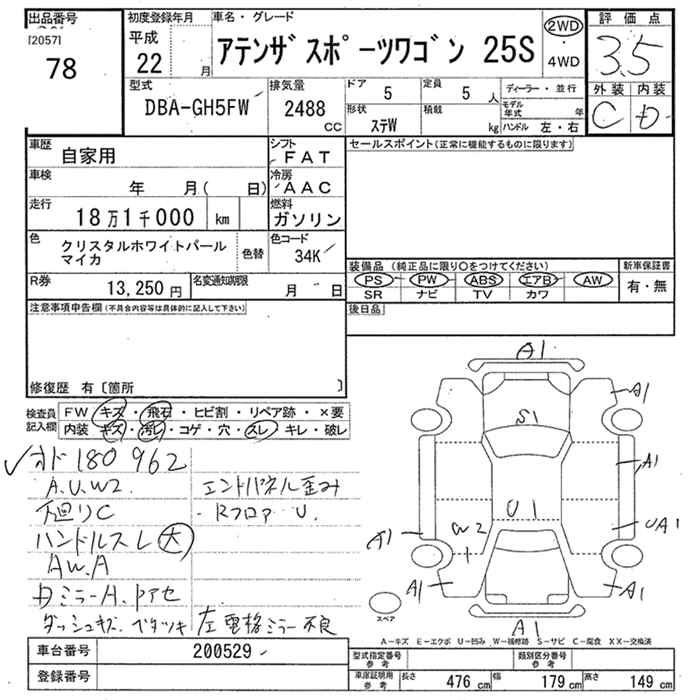 出品番号
[2057]
78
初度登録年月
平成
22 月
車名・グレード
アテンザスポーツワゴン 25S
2WD
・
4WD
評価点
3.5
外装 内装
C D
型式
DBA-GH5FW
排気量
2488
CC
ドア
5
定員
5 人
形状
ステW
積載
kg
ディーラー・並行
モデル年式 年
ハンドル 左・右
車歴
自家用
シフト
FAT
車検
年 月( 日)
冷房
AAC
走行
18万1千000 km
燃料
ガソリン
色
クリスタルホワイトパール
マイカ
色替
色コード
34K
R券
13,250 円
名変通知期限
月 日
セールスポイント(正常に機能するものに限ります)
装備品 (純正品に限り○をつけてください)
PS PW ABS エアB AW
SR ナビ TV カワ
新車保証書
有・無
後日品
注意事項申告欄(不具合内容等は具体的に記入して下さい)
修復歴 有〔箇所 〕
検査員
記入欄
FW キズ・飛石・ヒビ割・リペア跡・×要
内装 キズ・汚レ・コゲ・穴・スレ・キレ・破レ
✓オド180962
A.U.W2 エンドパネル歪み
下廻りC ・Rフロア U.
ハンドルスレ大
AW.A
ミラーA.
ダッシュキズ・ベタツキ 左電格ミラー不良
A1
A1
S1
A1
U1
W2
UA1
A1
A1
A1
A1
スペア
A-キズ E-エクボ U-凹み W-補修跡 S-サビ C-腐食 XX-交換済
車台番号
200529
登録番号
型式指定番号
参考
類別区分番号
参考
車庫証明用
参考
長さ 476 cm 幅 179 cm 高さ 149 cm